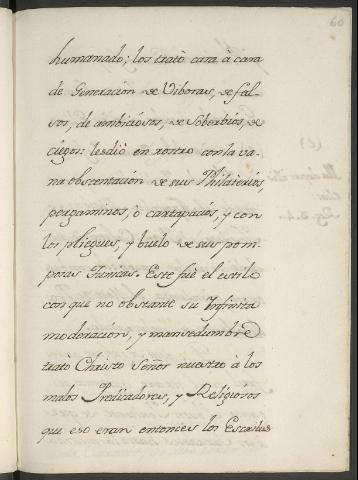 60
humanado; los trató cara à cara
de Generación de Viboras, de fal-
sos, de ambiciosos, de Soberbios, de
ciegos: les dió en rostro con la va-
na obstentación de sus Philacterios,
pergaminos, ò cartapacios, y con
los pliegues, y buelo de sus pom-
posas Tunicas. Este fué el estilo
con que no obstante su Infinita
moderación, y mansedumbre
trató Christo Señor nuestro à los
malos Predicadores, y Religiosos
que eso eran entonces los Escribas